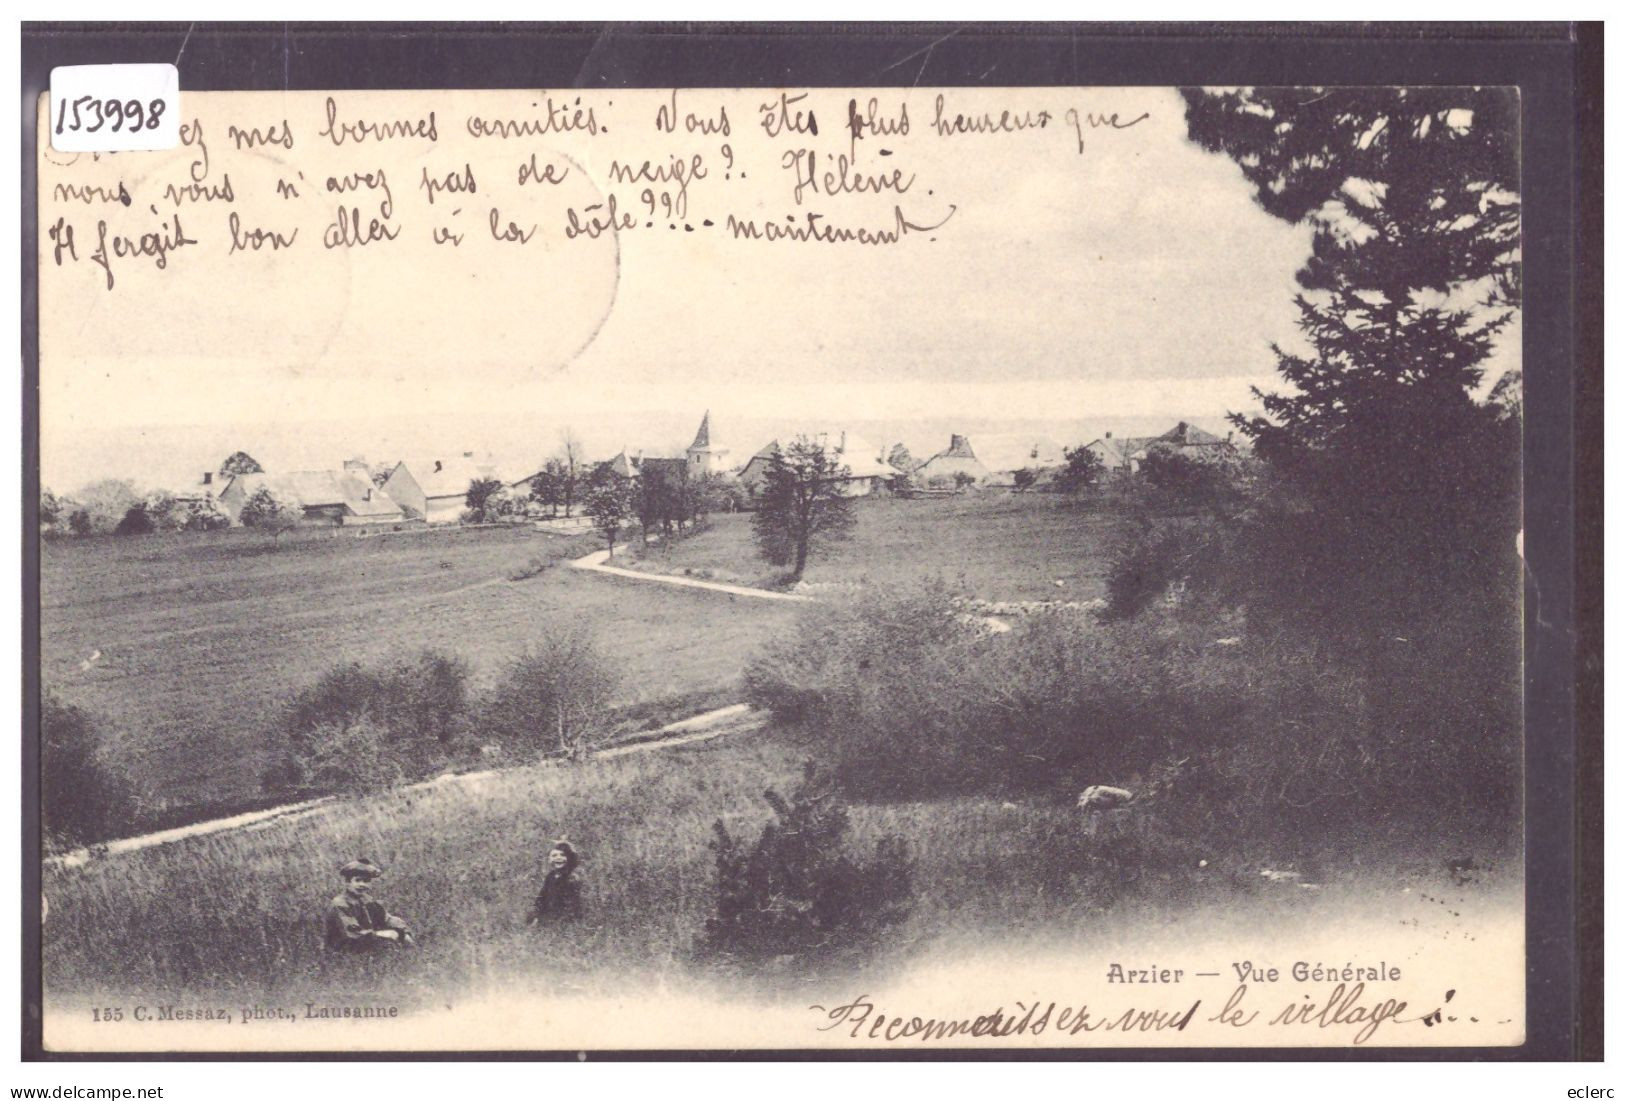 153998
ez mes bonnes amitiés. Vous êtes plus heureux que
nous, vous n'avez pas de neige?. Hélène.
Il fergit bon aller à la dôle??!.. maintenant.
Arzier — Vue Générale
155 C. Messaz, phot., Lausanne
Reconnaissez vous le village?...
delcampe.net
eclerc